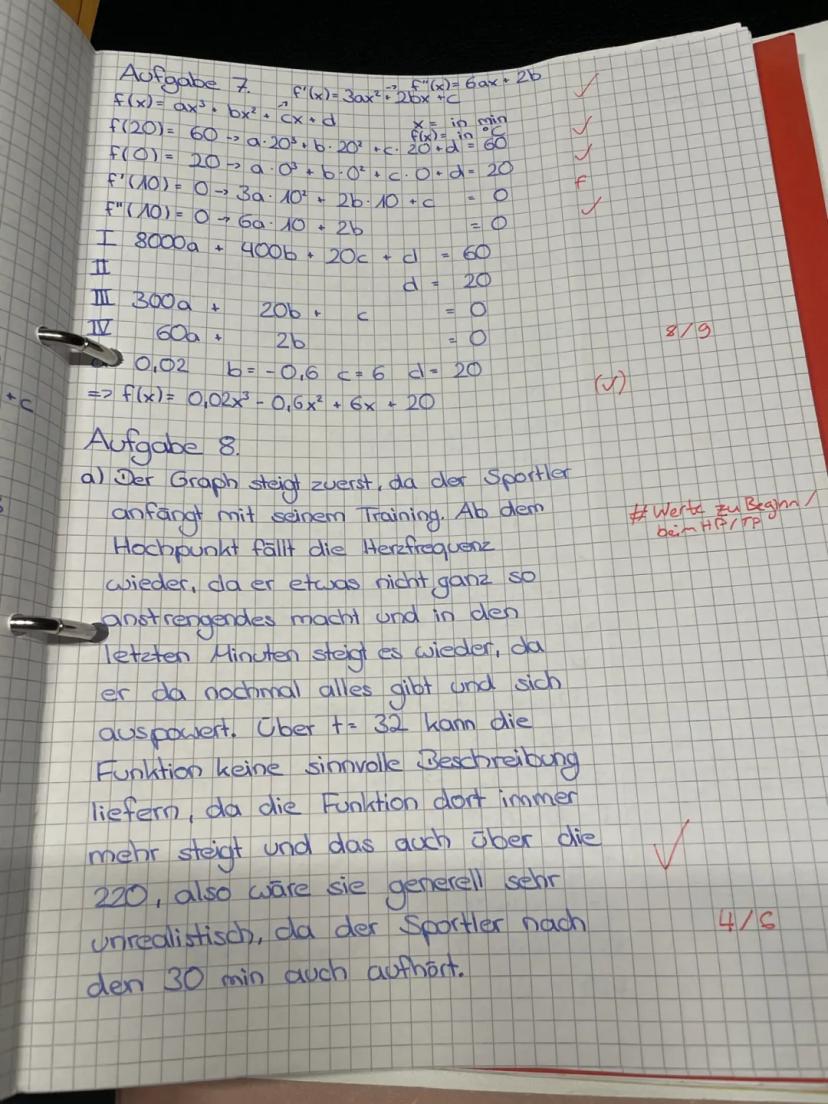 Aufgabe 7. f'(x)= 3ax² + 2bx + c → f''(x)= 6ax + 2b ✓
f(x)= ax³ + bx² + cx + d x = in min
f(20)= 60 → a·20³ + b·20² + c·20 + d = 60 f(x)= in °C ✓
f(0)= 20 → a·0³ + b·0² + c·0 + d = 20 ✓
f'(10)= 0 → 3a·10² + 2b·10 + c = 0 f
f''(10)= 0 → 6a·10 + 2b = 0 ✓
I 8000a + 400b + 20c + d = 60
II d = 20
III 300a + 20b + c = 0
IV 60a + 2b = 0
8/9
0,02 b= -0,6 c= 6 d= 20
=> f(x)= 0,02x³ - 0,6x² + 6x + 20 (✓)
Aufgabe 8.
a) Der Graph steigt zuerst, da der Sportler
anfängt mit seinem Training. Ab dem # Werte zu Beginn/
Hochpunkt fällt die Herzfrequenz beim HP/TP
wieder, da er etwas nicht ganz so
anstrengendes macht und in den
letzten Minuten steigt es wieder, da
er da nochmal alles gibt und sich
auspowert. Über t= 32 kann die
Funktion keine sinnvolle Beschreibung
liefern, da die Funktion dort immer
mehr steigt und das auch über die ✓
220, also wäre sie generell sehr
unrealistisch, da der Sportler nach 4/6
den 30 min auch aufhört.
+c